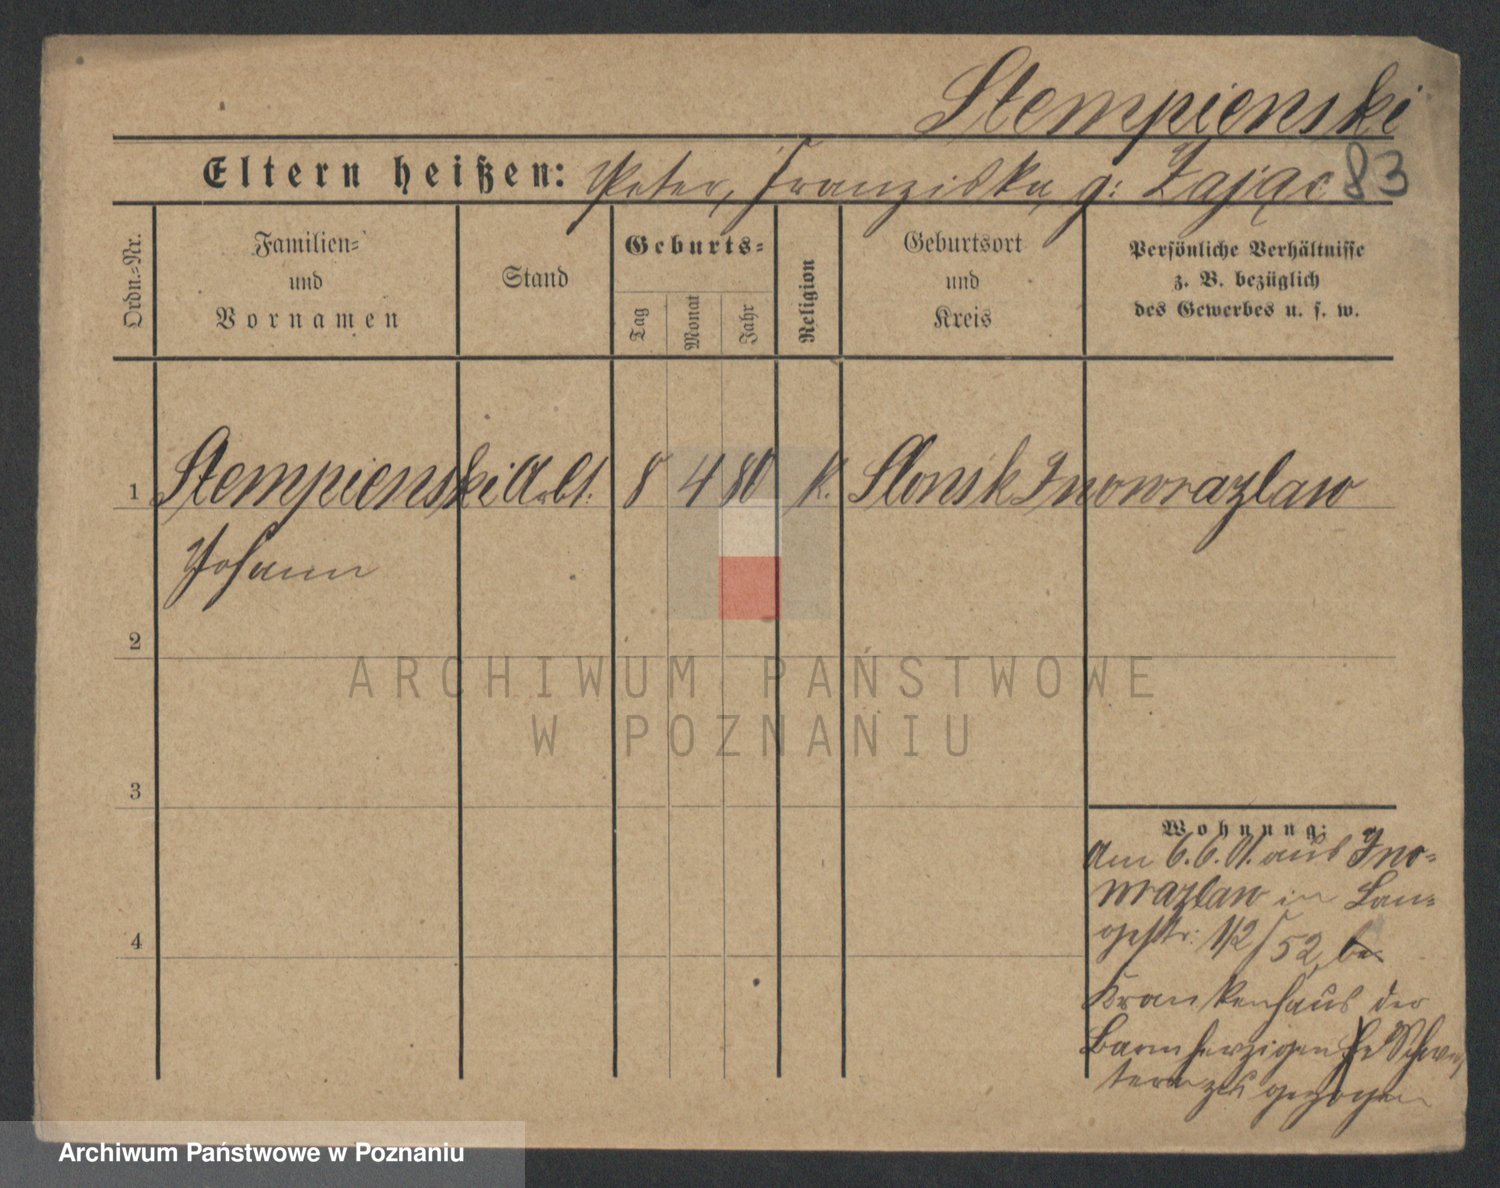 Stempienski
Eltern heißen: Peter, Franziska, g: Zając 83
Ordn.=Nr.
Familien=
und
Vornamen
Stand
Geburts=
Tag
Monat
Jahr
Religion
Geburtsort
und
Kreis
Persönliche Verhältnisse
z. B. bezüglich
des Gewerbes u. s. w.
1 Stempienski Arbt. 8 4 80 K. Slonsk Inowrazlaw
Johann
2
3
4
Wohnung:
Am 6.6.01. aus Ino=
wrazlaw in Lan=
gestr: 1/2 / 52
Krankenhaus der
Barmherzigen Schwes
tern zu gezogen
ARCHIWUM PAŃSTWOWE
W POZNANIU
Archiwum Państwowe w Poznaniu